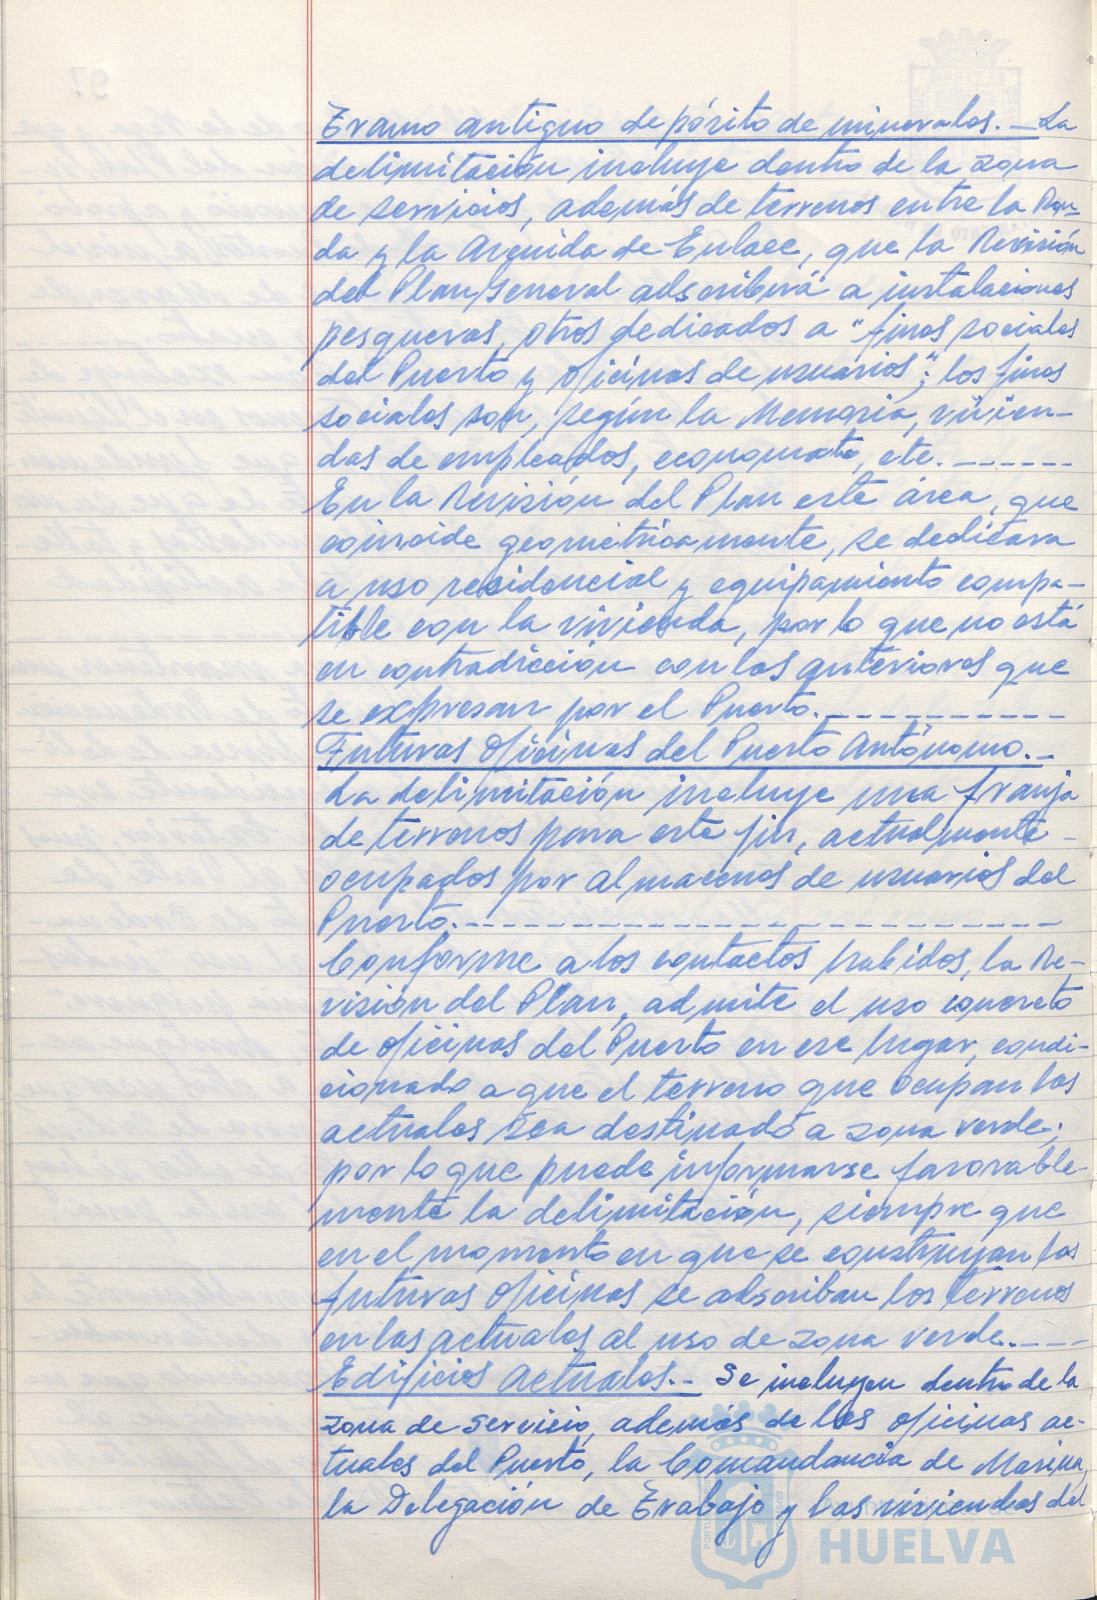 Tramo antiguo depósito de minerales.- La
delimitación incluye dentro de la zona
de servicios, además de terrenos entre la Ron-
da y la Avenida de Enlace, que la Revisión
del Plan General adscribirá a instalaciones
pesqueras, otros dedicados a "fines sociales
del Puerto y oficinas de usuarios"; los fines
sociales son, según la Memoria, vivien-
das de empleados, economato, etc.------
En la Revisión del Plan este área, que
coincide geométricamente, se dedicara
a uso residencial y equipamiento compa-
tible con la vivienda, por lo que no está
en contradicción con los anteriores que
se expresan por el Puerto.----------
Futuras Oficinas del Puerto Autónomo.-
La delimitación incluye una franja
de terrenos para este fin, actualmente -
ocupados por almacenes de usuarios del
Puerto.--------------------
Conforme a los contactos habidos, la Re-
visión del Plan, admite el uso concreto
de oficinas del Puerto en ese lugar, condi-
cionado a que el terreno que ocupan las
actuales sea destinado a zona verde;
por lo que puede informarse favorable-
mente la delimitación, siempre que
en el momento en que se construyan las
futuras oficinas se adscriban los terrenos
en las actuales al uso de zona verde.----
Edificios Actuales.- Se incluyen dentro de la
zona de servicio, además de las oficinas ac-
tuales del Puerto, la Comandancia de Marina,
la Delegación de Trabajo y las viviendas del
HUELVA